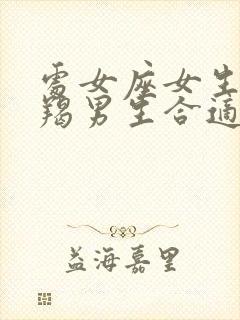 處女座女生
羯男生合適
益海嘉里